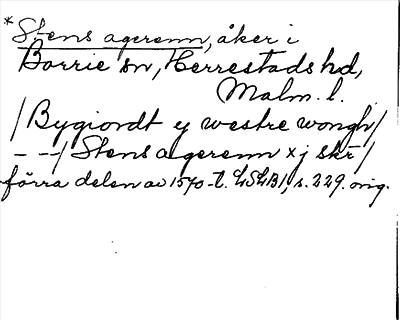 *Stens agerenn, åker i
Borrie sn, Herrestads hd,
Malm. l.
/Bygiordt ej westre wongh/
- --/ Stens agerenn xj skr/
förra delen av 1570-t. LSLB1, s. 229. orig.